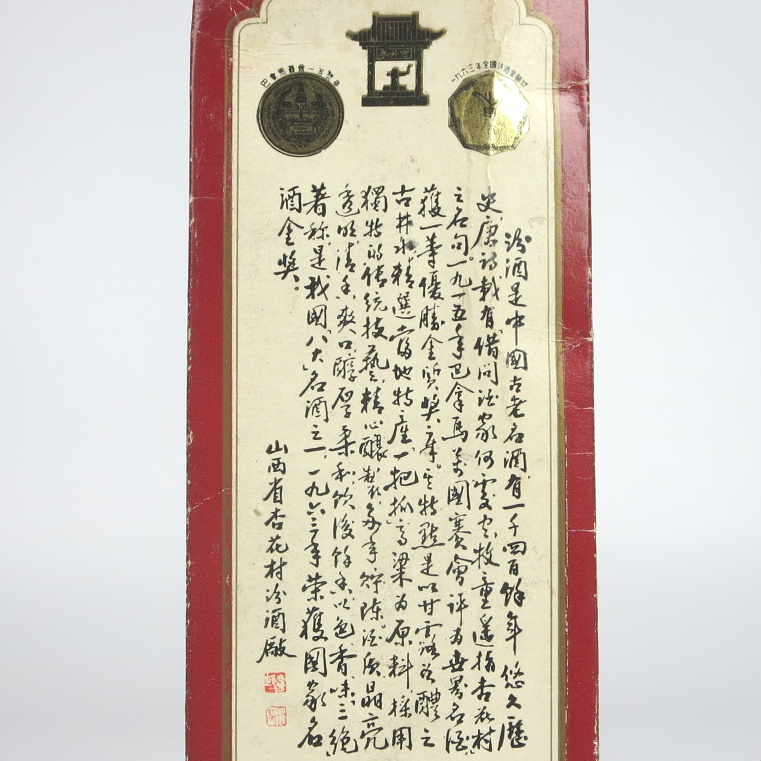 一九六三年全國評酒會議獎
汾酒是中國古老名酒有一千四百餘年悠久歷
史唐詩載有借問酒家何處有牧童遙指杏花村
之名句。一九一五年巴拿馬萬國賽會評為世界名酒
獲一等優勝金質獎章。其特點是以甘露如醴之
古井水精選當地特產一把抓高粱為原料採用
獨特的傳統技藝精心釀製多年貯陳。酒質晶亮
透明清香爽口醇厚柔和飲後餘香以色、香、味三絕
著称是我國八大名酒之一。一九六三年荣獲國家名
酒金獎。
山西省杏花村汾酒廠